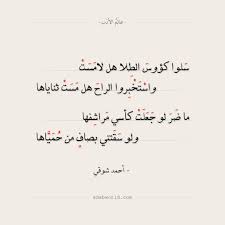 - عالم الأدب -
سَلوا كؤوسَ الطِلا هل لامَسَتْ
واسْتَخْبِروا الراحَ هل مَسَتْ ثناياها
ما ضَرَ لو جَعَلَتْ كأسي مَراشِفها
ولو سقَتني بصافٍ من حُمَيَّاها
- أحمد شوقي -